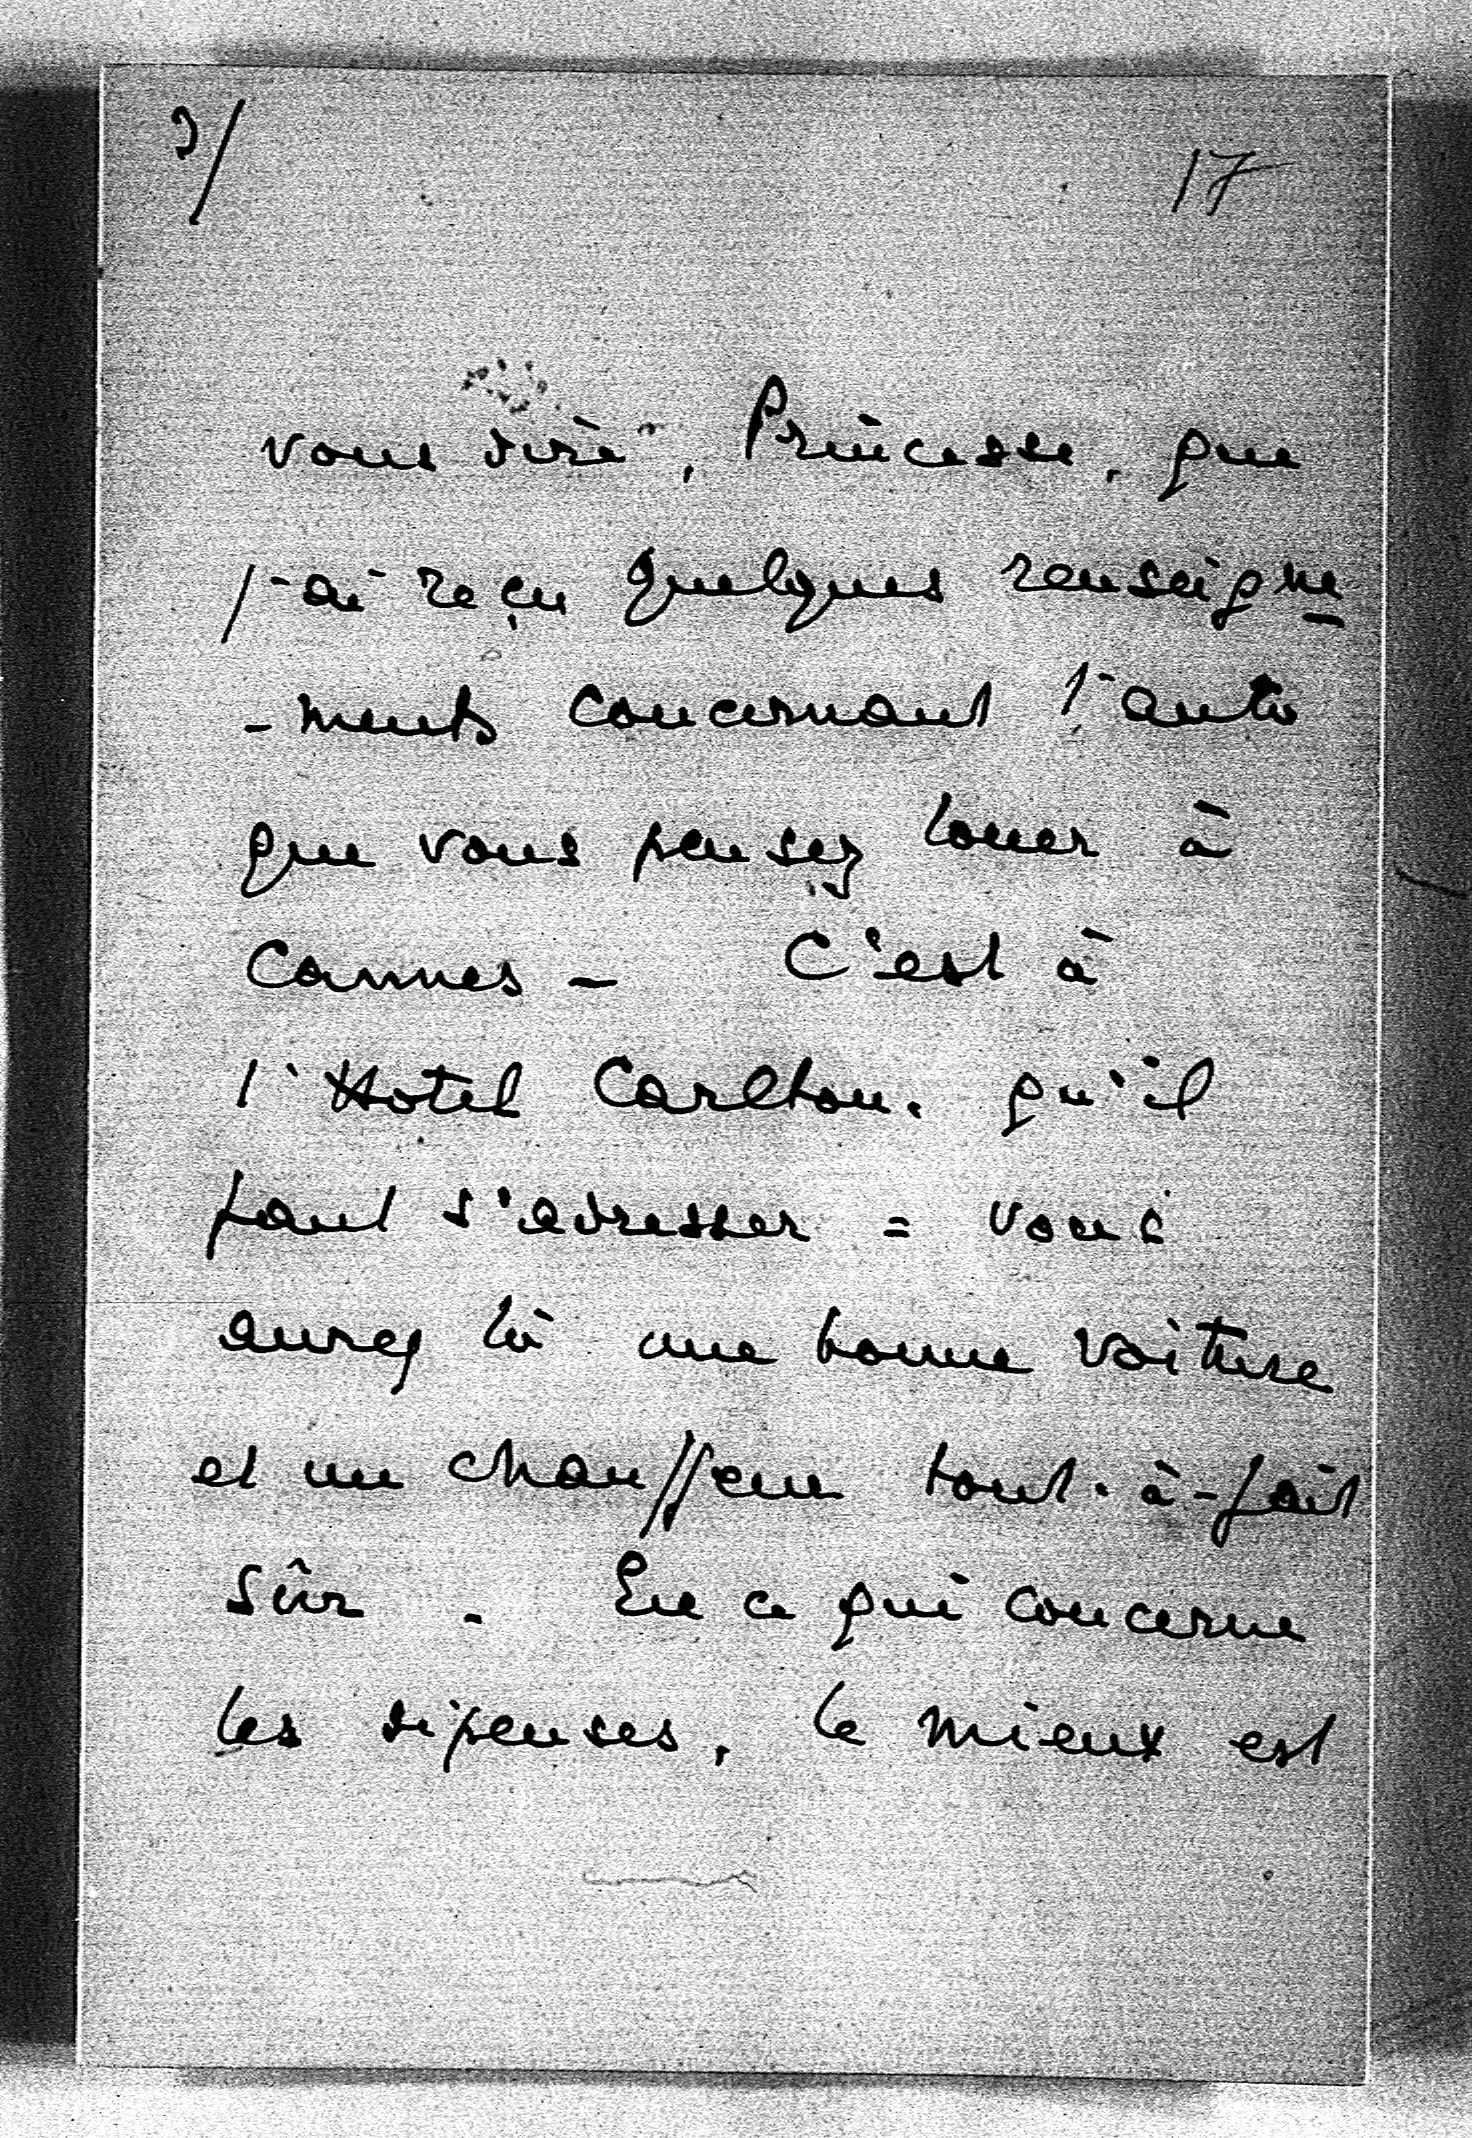 2/
17
vous dire, Princesse, que
j'ai reçu quelques renseigne
-ments concernant l'auto
que vous pensez louer à
Cannes – C'est à
l'Hotel Carlton. qu'il
faut s'adresser = vous
aurez là une bonne voiture
et un chauffeur tout-à-fait
sûr - En ce qui concerne
les dépenses, le mieux est